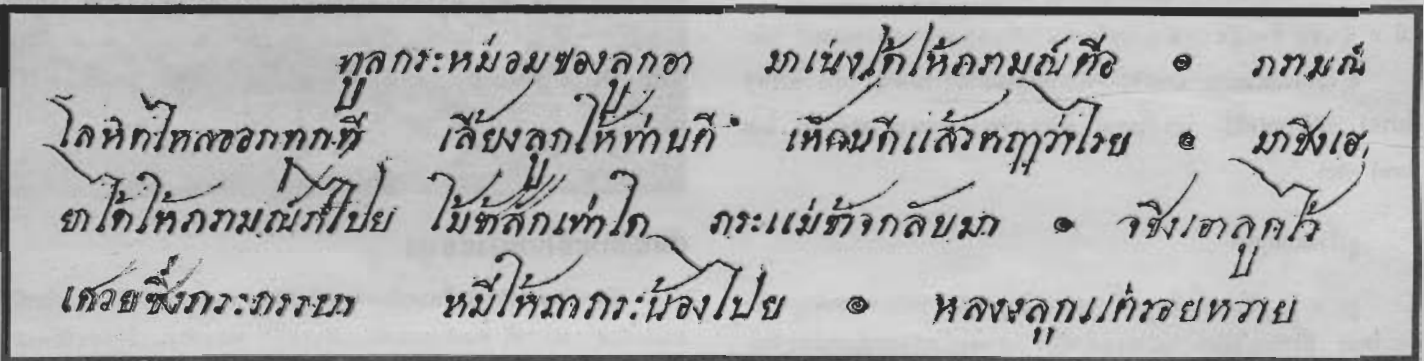 ทูลกระหม่อมของลูกอา มาเน่งได้ให้ภราមณ์ตีอ ๏ ภราមณ์
โลหิตไหลออกทกที เลี้ยงลูกให้ท่านตี เห็คนตีแล้วหฤๅว่าไรย ๏ มาชีงเอ
ยาได้ให้ภราមณ์ภาไปย ไม้ช้าสักเท่าใด ภระแม่ข้าจกลับมา ๏ จชีงเอาลูกไว้
เสวยซึ่งภระกรรมา หมีให้ภาภระน้องไปย ๏ หลงงลูกแต่รอยหวาย